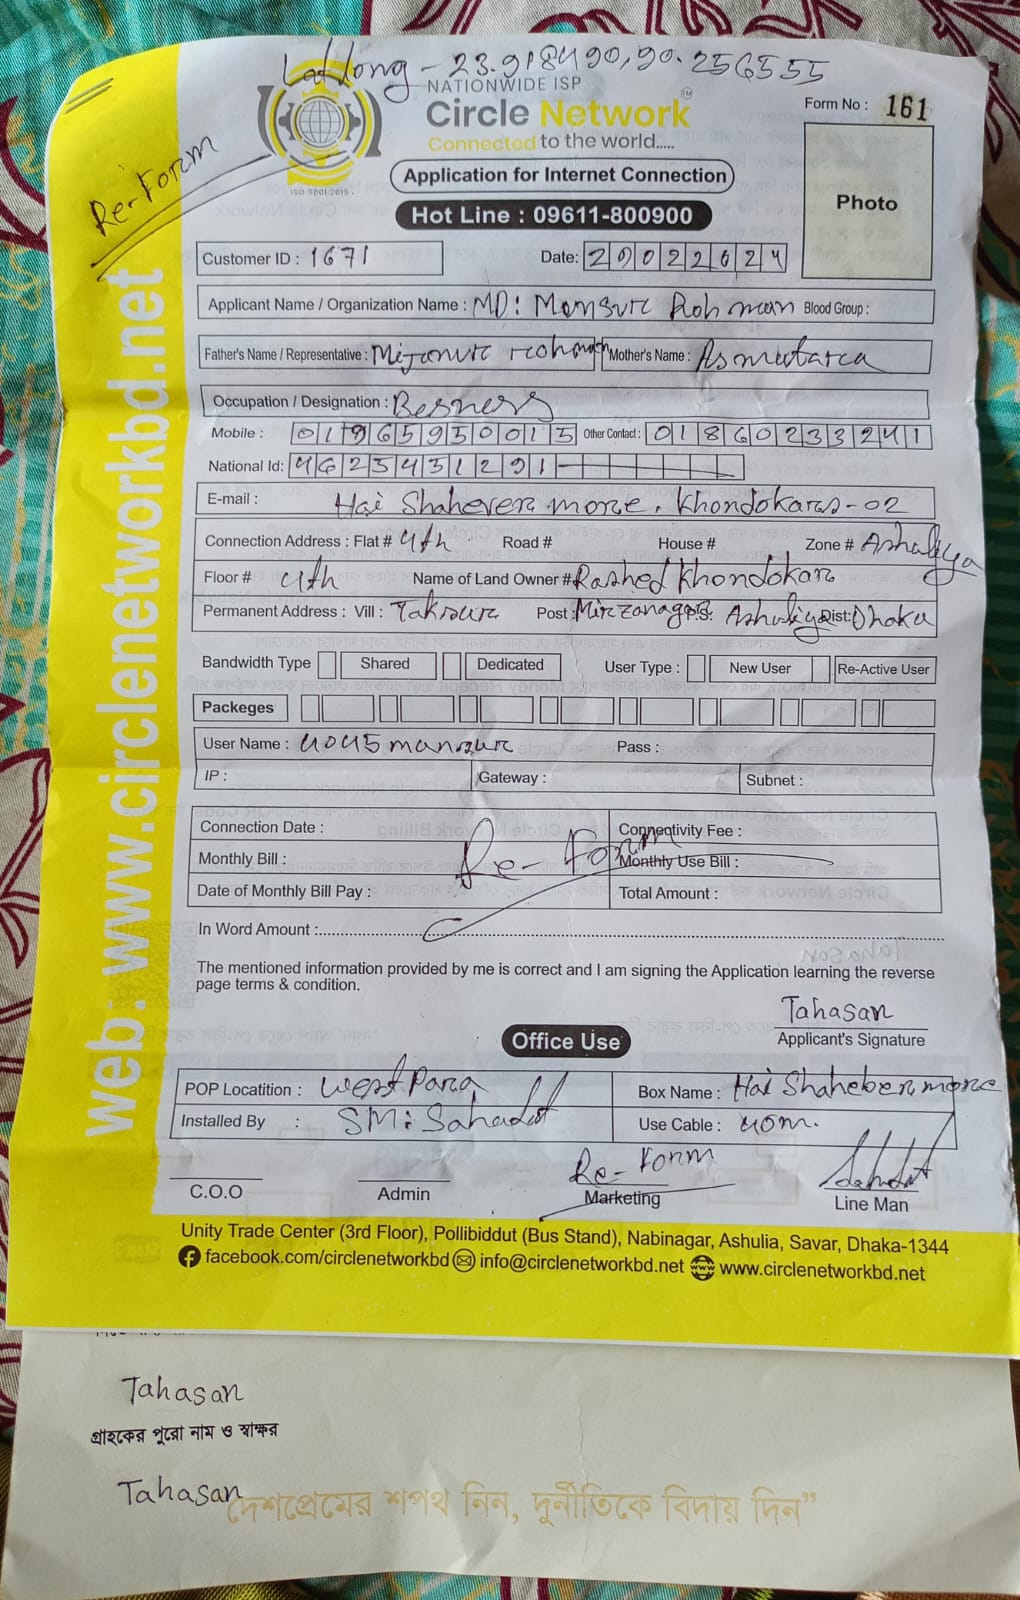 Lat long - 23.918490, 90.256555
NATIONWIDE ISP
Circle Network TM
Connected to the world.....
ISO 9001:2015
Form No : 161
Photo
Re-Form
Application for Internet Connection
Hot Line : 09611-800900
Customer ID : 1671 Date: 20022024
Applicant Name / Organization Name : MD: Monsur Rohman Blood Group :
Father's Name / Representative : Mijanur rohman Mother's Name : Asmutara
Occupation / Designation : Besness
Mobile : 01965950015 Other Contact : 01860233241
National Id: 4625451291
E-mail : Hai Shahever more, Khondokar-02
Connection Address : Flat # 4th Road # House # Zone # Ashuliya
Floor # 4th Name of Land Owner # Rashed Khondokar
Permanent Address : Vill : Taksur Post : Mirzanagar P.S: Ashuliya Dist: Dhaka
Bandwidth Type Shared Dedicated User Type : New User Re-Active User
Packeges
User Name : 4045mansur Pass :
IP : Gateway : Subnet :
Connection Date : Connectivity Fee :
Monthly Bill : Re-Form Monthly Use Bill :
Date of Monthly Bill Pay : Total Amount :
In Word Amount :
The mentioned information provided by me is correct and I am signing the Application learning the reverse
page terms & condition.
Tahasan
Applicant's Signature
Office Use
POP Locatition : West Para Box Name : Hai Shaheber more
Installed By : SM: Sahadat Use Cable : 40m.
Re-Form Sahadat
C.O.O Admin Marketing Line Man
Unity Trade Center (3rd Floor), Pollibiddut (Bus Stand), Nabinagar, Ashulia, Savar, Dhaka-1344
facebook.com/circlenetworkbd info@circlenetworkbd.net www.circlenetworkbd.net
web: www.circlenetworkbd.net
Tahasan
গ্রাহকের পুরো নাম ও স্বাক্ষর
Tahasan
দেশপ্রেমের শপথ নিন, দুর্নীতিকে বিদায় দিন”